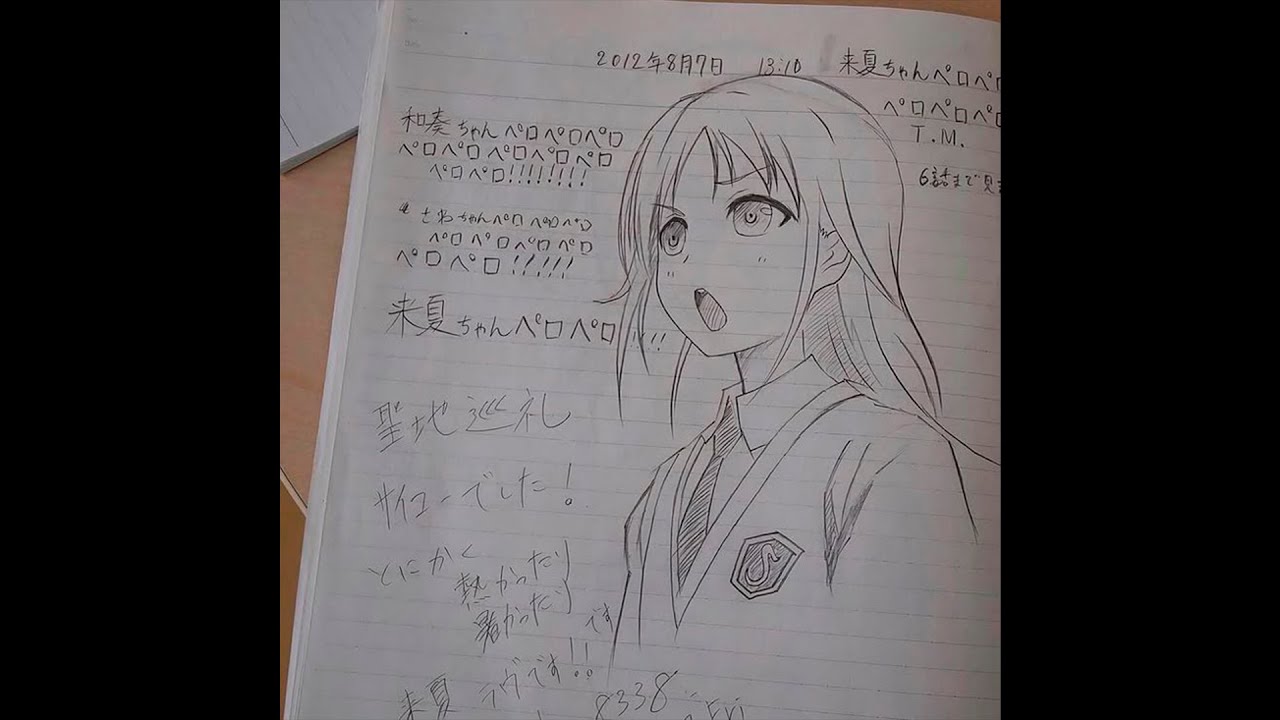 2012年8月7日 13:10
来夏ちゃんペロペロ
ペロペロペロ
T.M.
6話まで見
和奏ちゃんペロペロペロ
ペロペロペロペロペロ
ペロペロ!!!!!!!!
さわちゃんペロペロペロ
ペロペロペロペロ
ペロペロ!!!!!
来夏ちゃんペロペロ!!!!
聖地巡礼
サイコーでした!
とにかく
熱かったり
暑かったり
です
来夏 ラヴです!!
8338